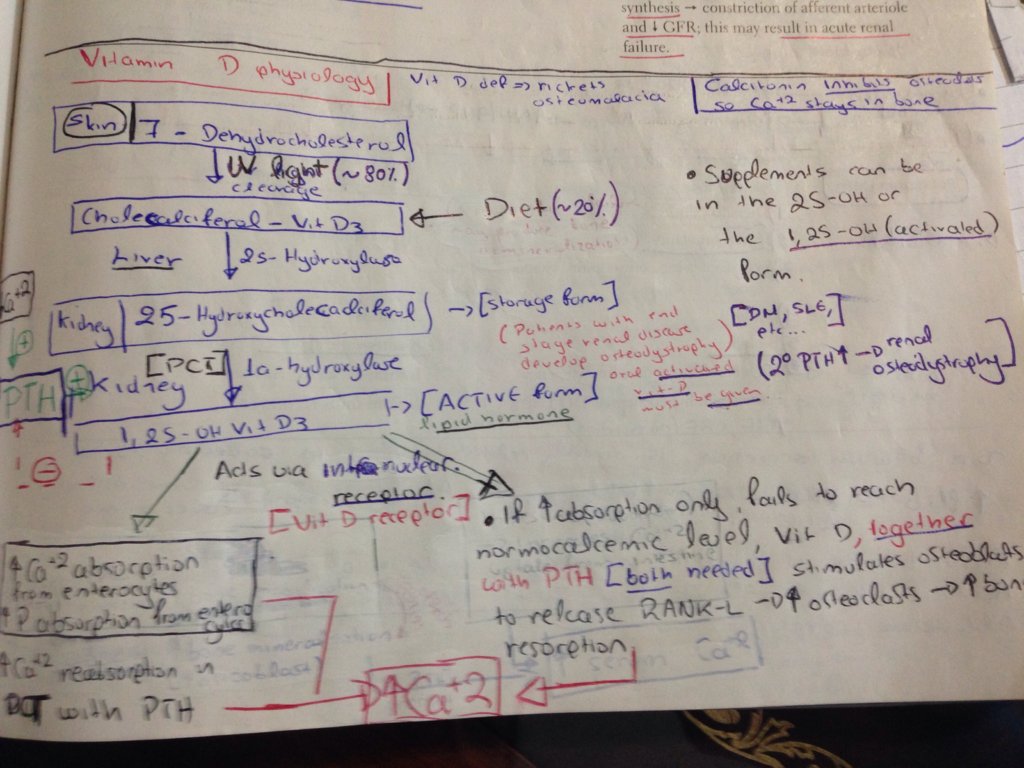 synthesis → constriction of afferent arteriole
and ↓ GFR; this may result in acute renal
failure.
Vitamin D physiology
Vit D def => rickets
osteomalacia
Calcitonin inhibits osteoclasts
so Ca+2 stays in bone
Skin | 7 - Dehydrocholesterol
UV light (~80%)
cleavage
Cholecalciferol - Vit D3 ← Diet (~20%)
Liver
25-Hydroxylase
• Supplements can be
in the 25-OH or
the 1,25-OH (activated)
form.
Kidney | 25-Hydroxycholecalciferol → [storage form]
(Patients with end
stage renal disease
develop osteodystrophy)
oral activated
vit-D
must be given.
[DM, SLE,
etc...
(2° PTH↑ → renal
osteodystrophy)]
Ca+2
+
PTH +
[PCT] 1a-hydroxylase
Kidney
1,25-OH Vit D3
→ [ACTIVE form]
lipid hormone
-
Acts via intranuclear
receptor.
[Vit D receptor]
↑Ca+2 absorption
from enterocytes
↑P absorption from entero
cytes
↑Ca+2 reabsorption in
DCT with PTH
• If ↑absorption only, fails to reach
normocalcemic level, Vit D, together
with PTH [both needed] stimulates osteoblasts
to release RANK-L → ↑osteoclasts → ↑bone
resorption
↑Ca+2